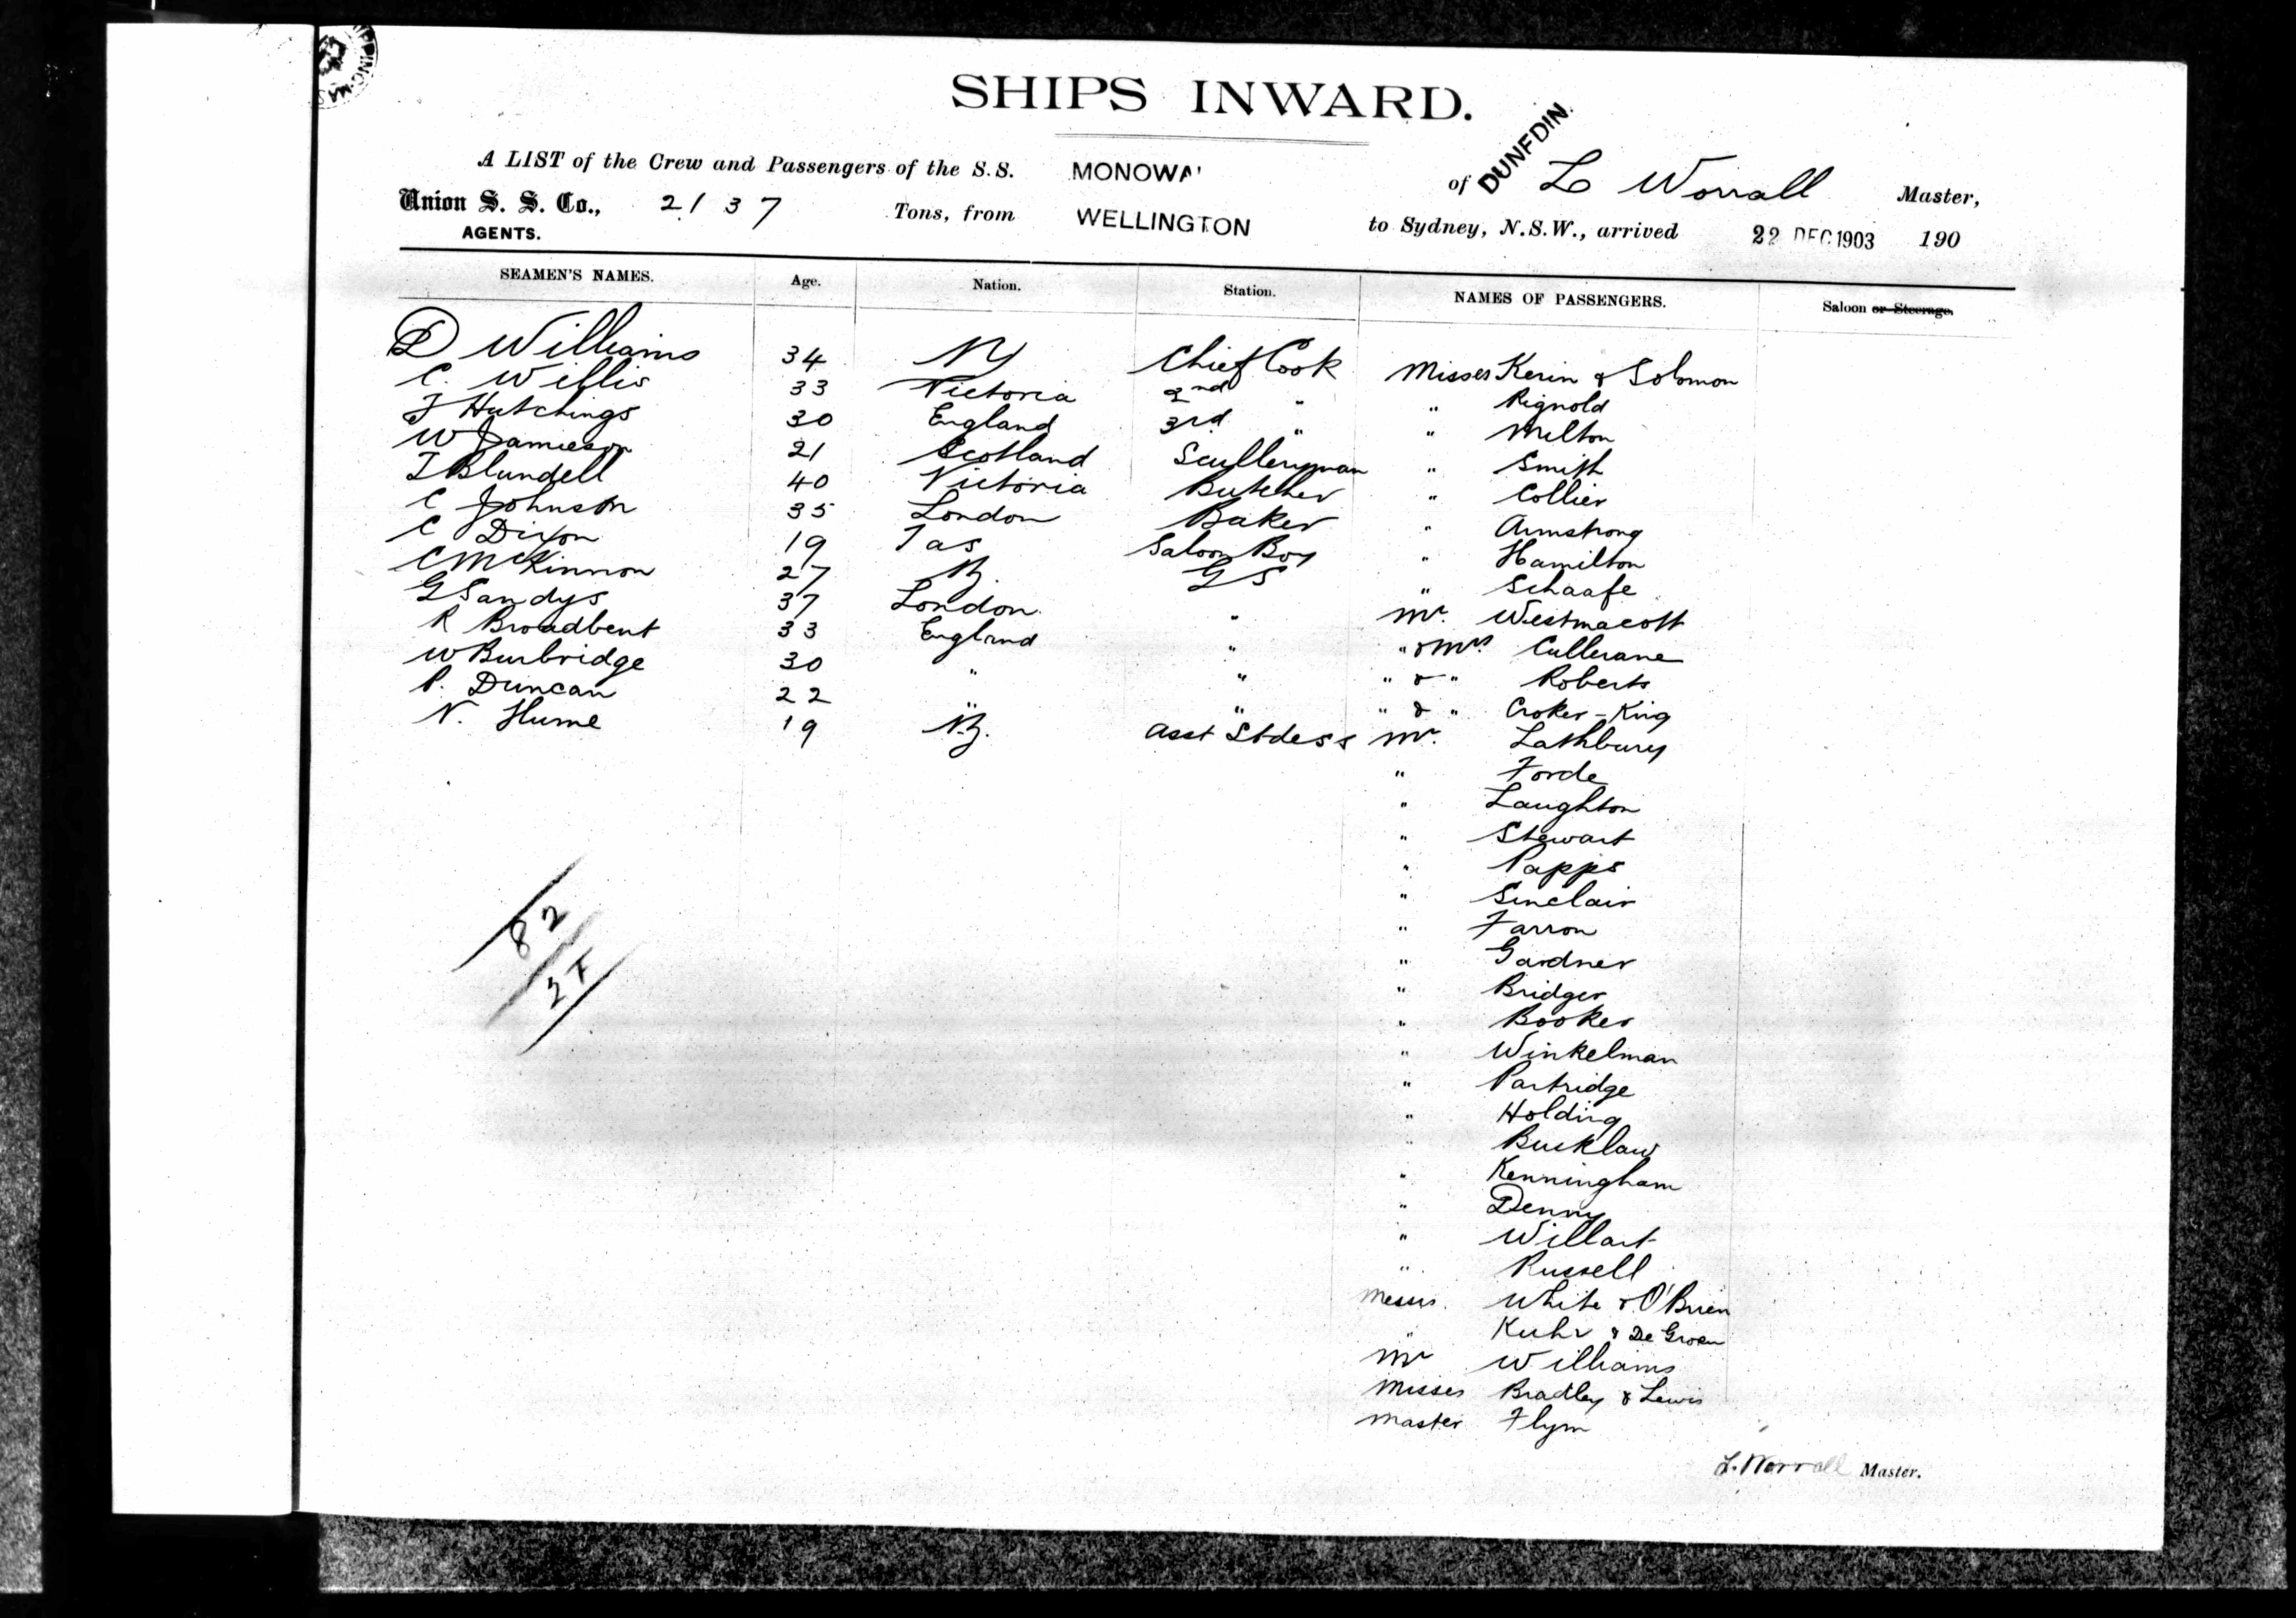 SHIPS INWARD.
A LIST of the Crew and Passengers of the S.S. MONOWA of DUNEDIN. L Worrall Master,
Union S. S. Co., 2137 Tons, from WELLINGTON to Sydney, N.S.W., arrived 22 DEC 1903 190
AGENTS.
SEAMEN'S NAMES. Age. Nation. Station. NAMES OF PASSENGERS. Saloon or Steerage.
D Williams 34 NZ Chief Cook Misses Kerin & Solomon
C. Willis 33 Victoria 2nd " " Rignold
F Hutchings 30 England 3rd " " Milton
W Jamieson 21 Scotland Sculleryman " Smith
T Blundell 40 Victoria Butcher " Collier
C Johnson 35 London Baker " Armstrong
C Dixon 19 Tas Saloon Boy " Hamilton
C McKinnon 27 NZ. G S " Schaafe
G Sandys 37 London " Mr. Westmacott
R Broadbent 33 England " " & Mrs Cullerane
W Burbridge 30 " " " & " Roberts
P. Duncan 22 " " " & " Croker-King
N. Hume 19 N.Z. Asst Stdess Mr. Lathbury
" Forde
" Laughton
" Stewart
" Papps
" Sinclair
" Farron
" Gardner
" Bridger
" Booker
" Winkelman
" Partridge
" Holding
" Bucklaw
" Kenningham
" Denny
" Willart
" Russell
Messrs. White & O'Brien
" Kuhr & De Groen
Mr Williams
Misses Bradley & Lewis
Master Flynn
82
L. Worrall Master.